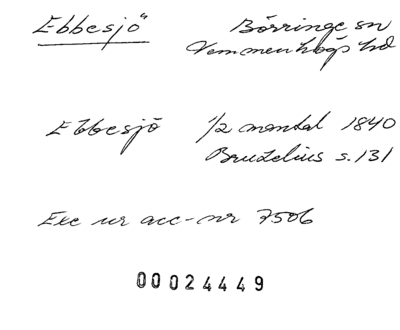 Ebbesjö Börringe sn
Vemmenhögs hd
Ebbesjö 1/2 mantal 1840
Bruzelius s. 131
Exc ur acc-nr 7506
00024449